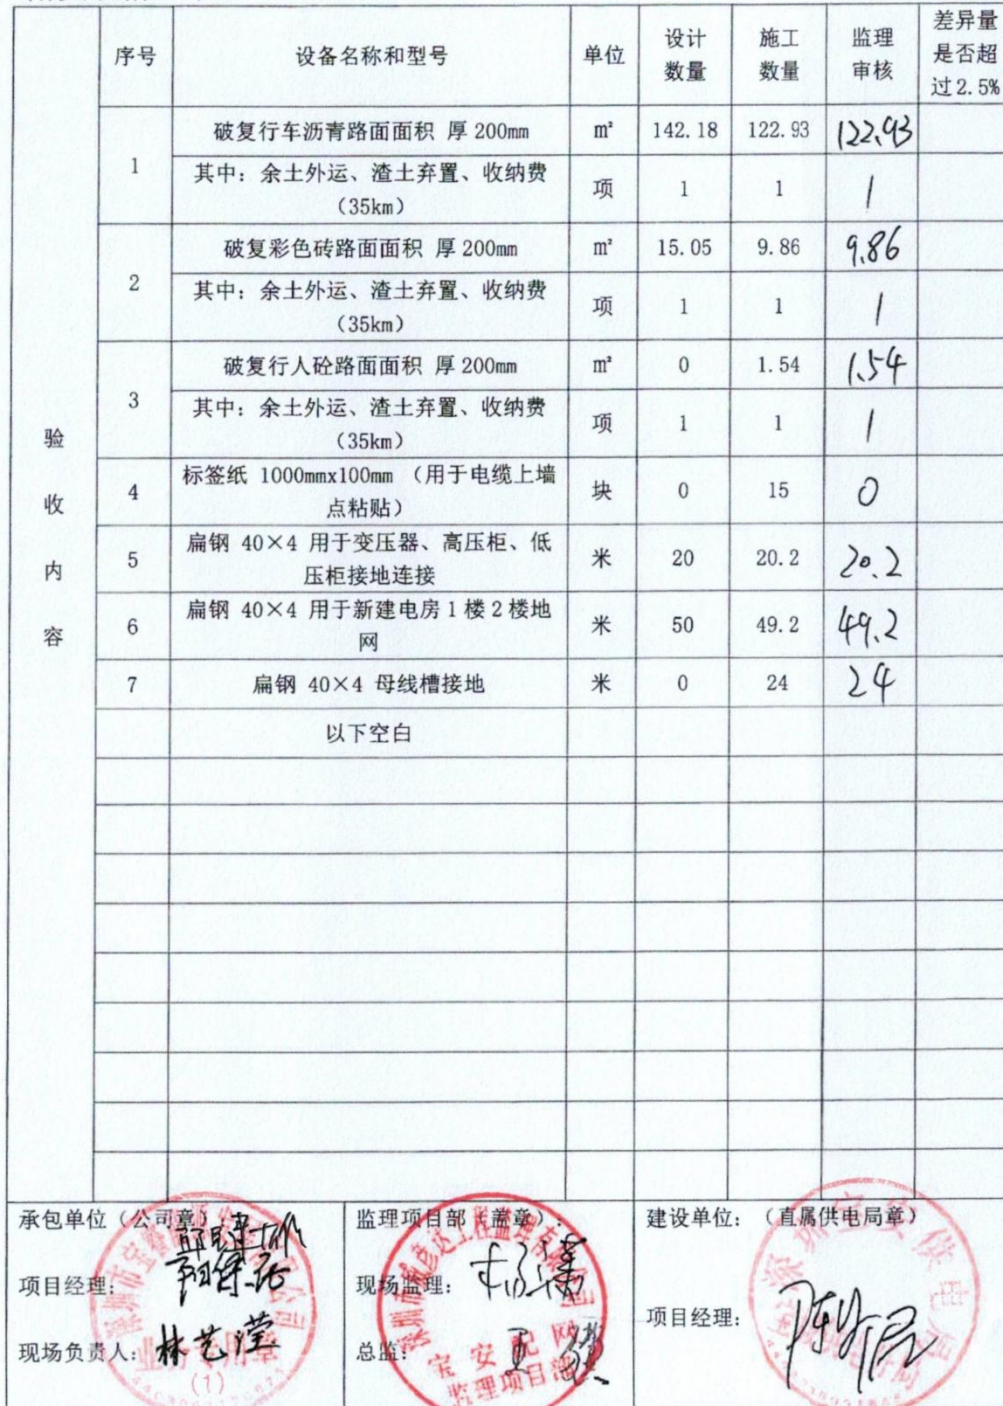 序号 设备名称和型号 单位 设计数量 施工数量 监理审核 差异量是否超过2.5%
验收内容
1 破复行车沥青路面面积 厚200mm m² 142.18 122.93 122.93
其中：余土外运、渣土弃置、收纳费（35km） 项 1 1 1
2 破复彩色砖路面面积 厚200mm m² 15.05 9.86 9.86
其中：余土外运、渣土弃置、收纳费（35km） 项 1 1 1
3 破复行人砼路面面积 厚200mm m² 0 1.54 1.54
其中：余土外运、渣土弃置、收纳费（35km） 项 1 1 1
4 标签纸 1000mmx100mm （用于电缆上墙点粘贴） 块 0 15 0
5 扁钢 40×4 用于变压器、高压柜、低压柜接地连接 米 20 20.2 20.2
6 扁钢 40×4 用于新建电房1楼2楼地网 米 50 49.2 49.2
7 扁钢 40×4 母线槽接地 米 0 24 24
以下空白
承包单位（公司章） 监理项目部（盖章）： 建设单位：（直属供电局章）
项目经理： 现场监理： 项目经理：
现场负责人：林艺滢 总监：
业务专用章
(1)
宝安配网
监理项目部